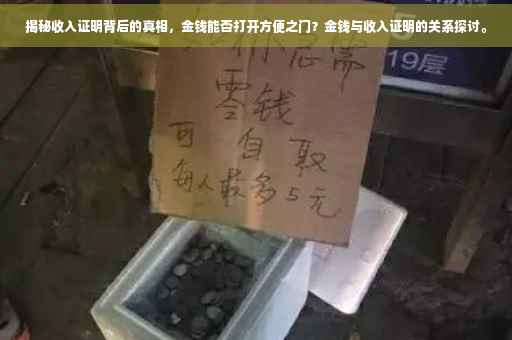 揭秘收入证明背后的真相，金钱能否打开方便之门？金钱与收入证明的关系探讨。
你急需
19层
零钱
可 自 取
每人最多5元